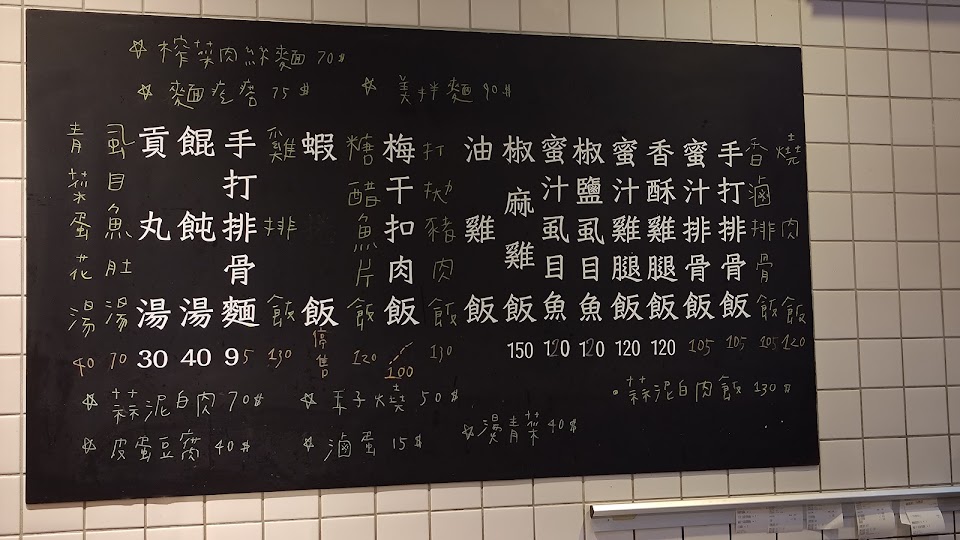 ☆ 榨菜肉絲麵 70$
☆ 麵疙瘩 75$
☆ 美拌麵 90$
燒肉飯 120
香滷排骨飯 105
手打排骨飯 105
蜜汁排骨飯 105
香酥雞腿飯 120
蜜汁雞腿飯 120
椒鹽虱目魚 120
蜜汁虱目魚 120
椒麻雞飯 150
油雞飯
打拋豬肉飯 130
梅干扣肉飯 100
糖醋魚片飯 120
蝦飯 停售
雞排飯 130
手打排骨麵 95
餛飩湯 40
貢丸湯 30
虱目魚肚湯 70
青菜蛋花湯 40
☆ 蒜泥白肉 70$
☆ 子燒 50$
蒜泥白肉飯 130$
☆ 皮蛋豆腐 40$
☆ 滷蛋 15$
☆ 燙青菜 40$